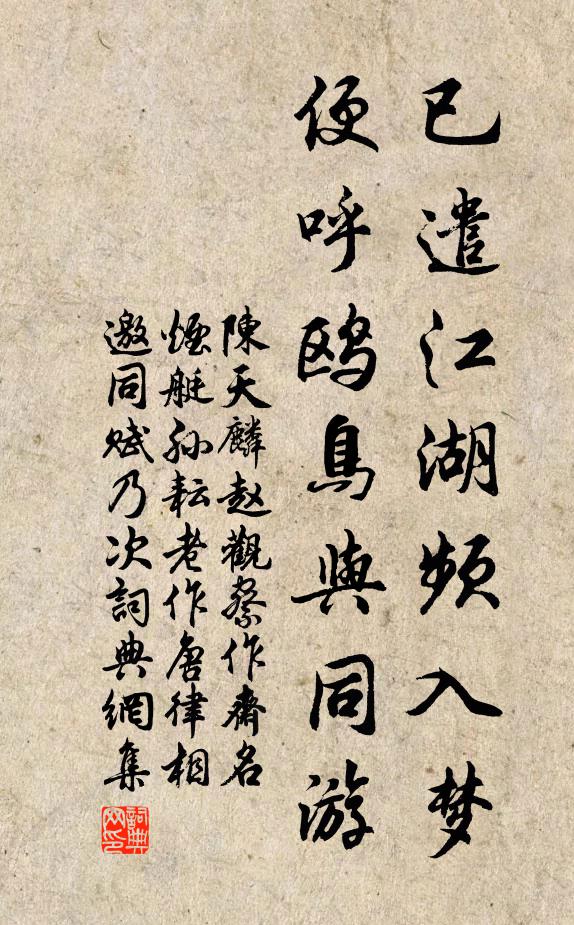 已遣江湖频入梦
便呼鸥鳥與同游
陳天麟赵觀察作齋名
煙艇孙耘老作唐律相
邀同赋乃次詞典網集
詞典
网印